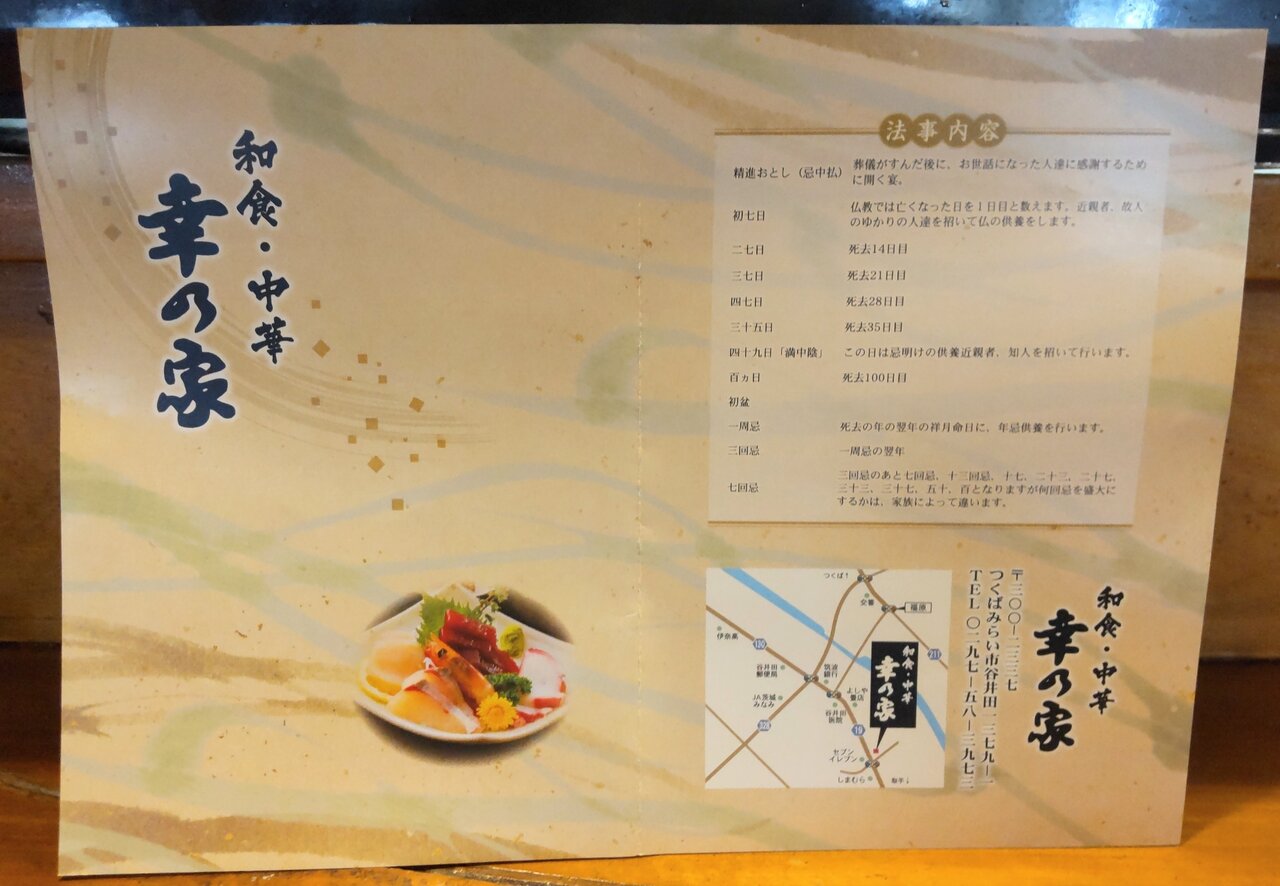 和食・中華
幸乃家
法事内容
精進おとし（忌中払）
葬儀がすんだ後に、お世話になった人達に感謝するため
に開く宴。
初七日
仏教では亡くなった日を１日目と数えます。近親者、故人
のゆかりの人達を招いて仏の供養をします。
二七日 死去14日目
三七日 死去21日目
四七日 死去28日目
三十五日 死去35日目
四十九日「満中陰」 この日は忌明けの供養近親者、知人を招いて行います。
百ヵ日 死去100日目
初盆
一周忌 死去の年の翌年の祥月命日に、年忌供養を行います。
三回忌 一周忌の翌年
七回忌
三回忌のあと七回忌、十三回忌、十七、二十三、二十七、
三十三、三十七、五十、百となりますが何回忌を盛大に
するかは、家族によって違います。
和食・中華
幸乃家
〒三〇〇－二三三七
つくばみらい市谷井田一三七九－一
TEL 〇二九七－五八－三九七三
つくば↑
交番
福原
伊奈高
130
211
谷井田
郵便局
筑波
銀行
和食・中華
幸乃家
JA茨城
みなみ
よしや
畳店
谷井田
医院
328
19
セブン
イレブン
しまむら
取手↓